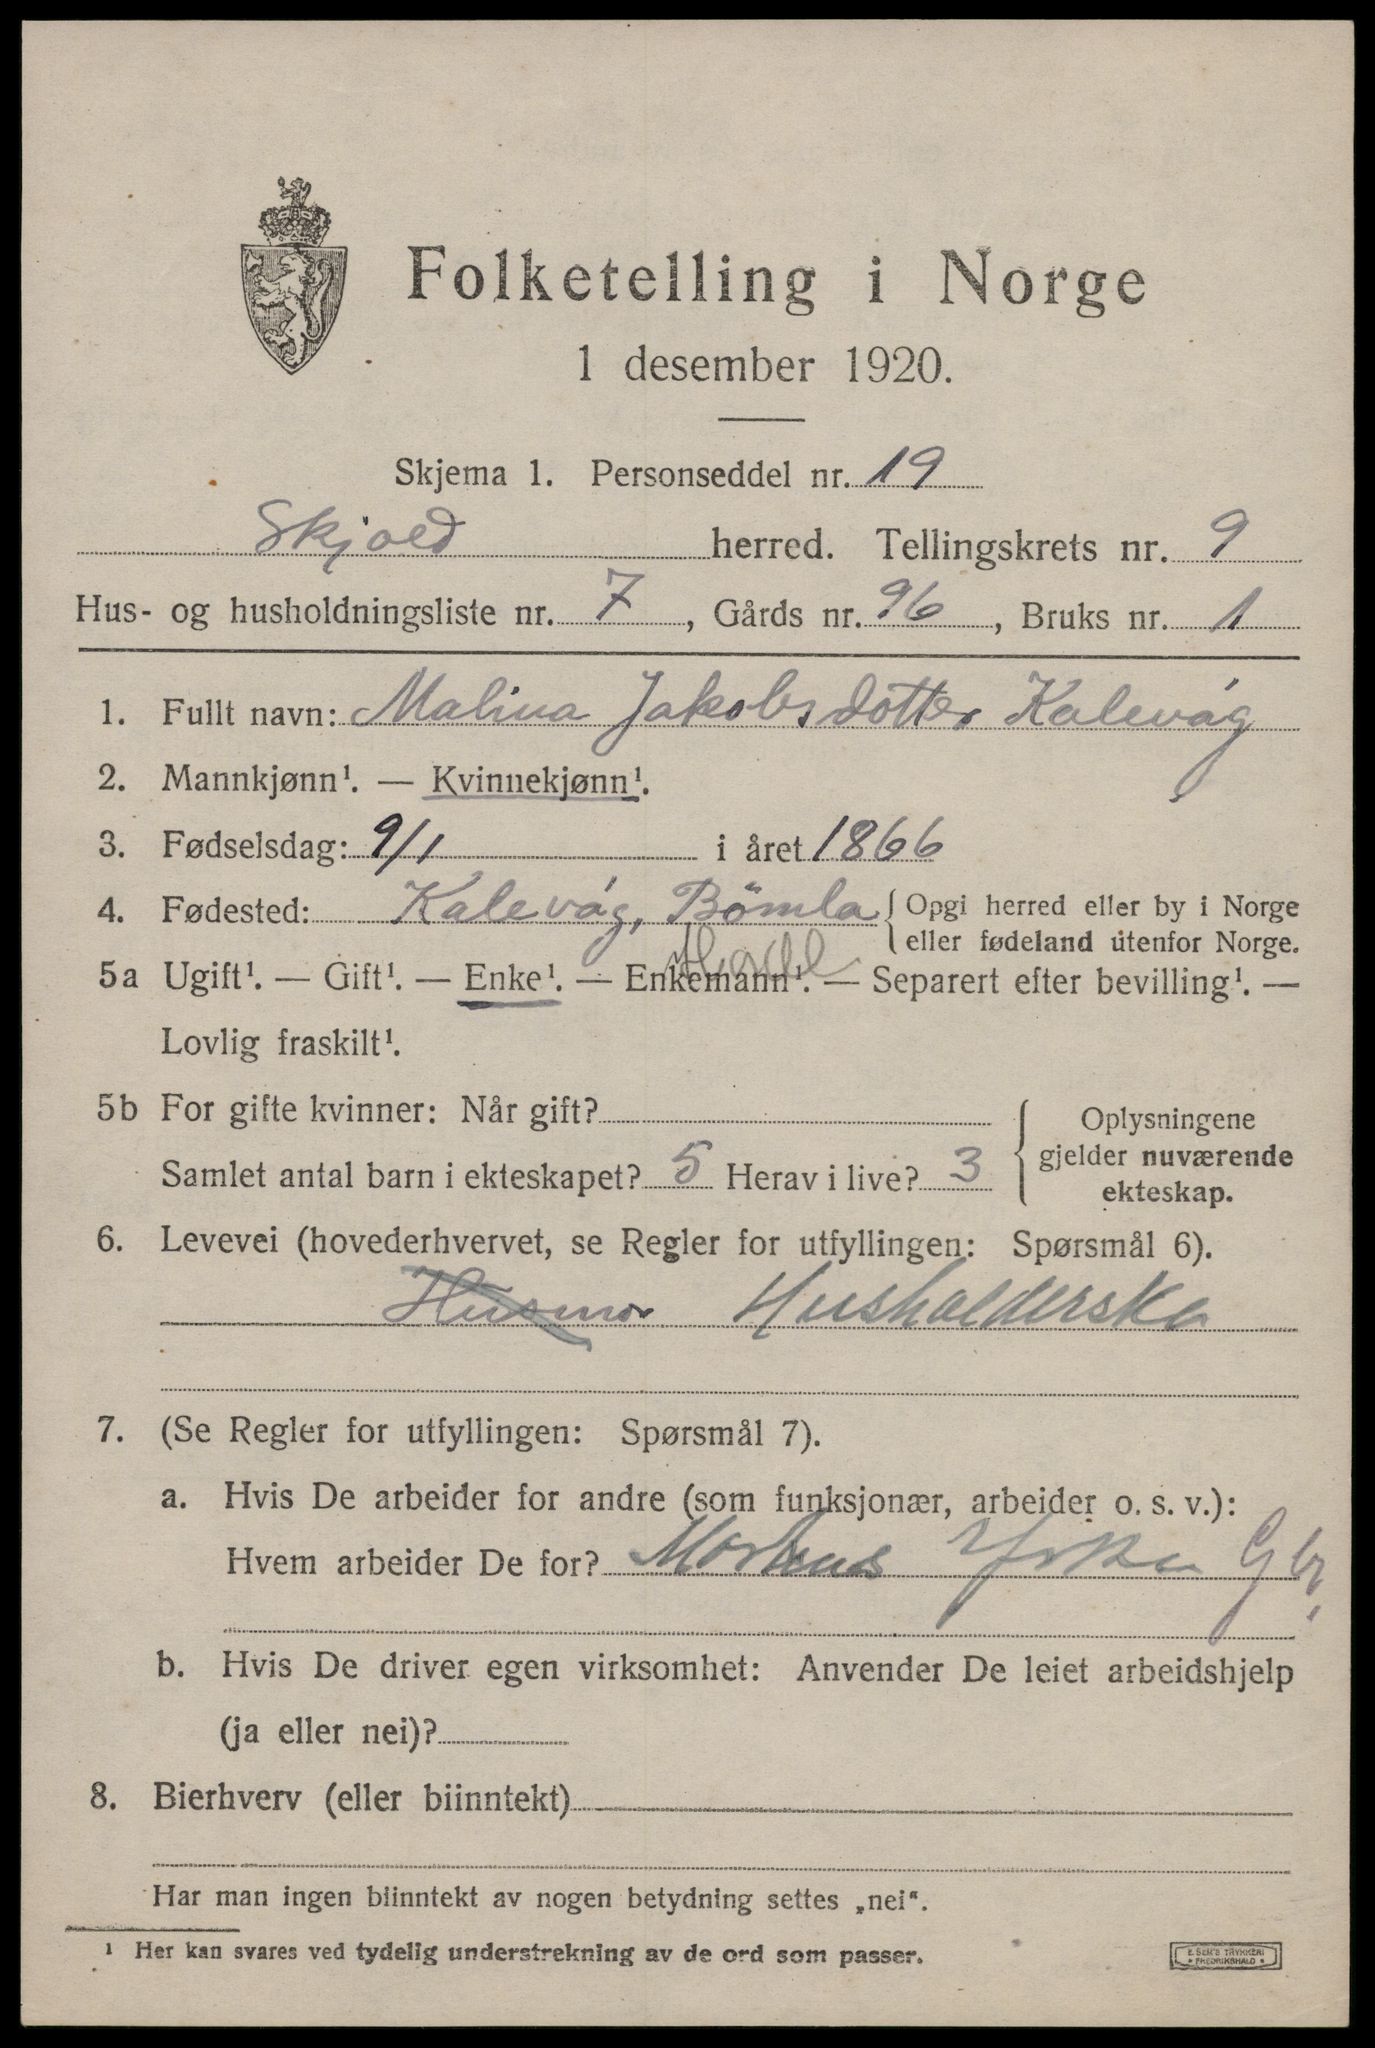 Folketelling i Norge
1 desember 1920.
Skjema 1. Personseddel nr. 19
Skjold herred. Tellingskrets nr. 9
Hus- og husholdningsliste nr. 7, Gårds nr. 96, Bruks nr. 1
1. Fullt navn: Malina Jakobsdotter Kalevåg
2. Mannkjønn¹. — Kvinnekjønn¹.
3. Fødselsdag: 9/1 i året 1866
4. Fødested: Kalevåg, Bömla { Opgi herred eller by i Norge
eller fødeland utenfor Norge.
5a Ugift¹. — Gift¹. — Enke¹. — Enkemann¹. — Separert efter bevilling¹. —
Lovlig fraskilt¹.
5b For gifte kvinner: Når gift?
Samlet antal barn i ekteskapet? 5 Herav i live? 3
{ Oplysningene
gjelder nuværende
ekteskap.
6. Levevei (hovederhvervet, se Regler for utfyllingen: Spørsmål 6).
Husmor Husholderska
7. (Se Regler for utfyllingen: Spørsmål 7).
a. Hvis De arbeider for andre (som funksjonær, arbeider o. s. v.):
Hvem arbeider De for? Gbr.
b. Hvis De driver egen virksomhet: Anvender De leiet arbeidshjelp
(ja eller nei)?
8. Bierhverv (eller biinntekt)
Har man ingen biinntekt av nogen betydning settes „nei“.
¹ Her kan svares ved tydelig understrekning av de ord som passer.
E. SEM'S TRYKKERI
• FREDRIKSHALD •